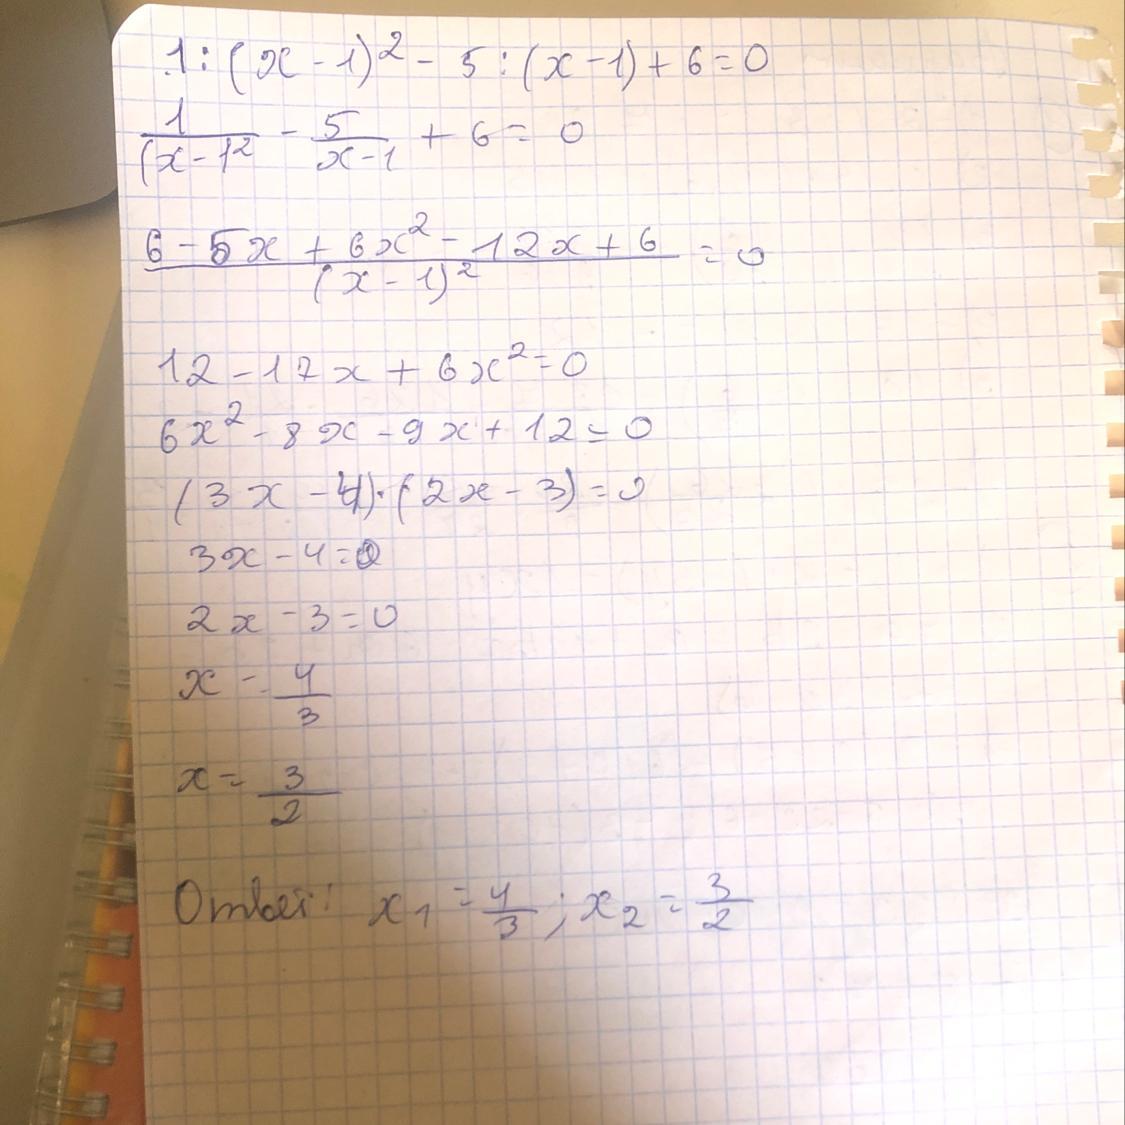 1:(x-1)² - 5:(x-1)+6=0
1/(x-1² - 5/x-1 + 6 = 0
6-5x+6x²-12x+6/(x-1)² = 0
12-17x+6x²=0
6x²-8x-9x+12=0
(3x-4)·(2x-3)=0
3x-4=0
2x-3=0
x=4/3
x=3/2
Ответ: x₁=4/3; x₂=3/2